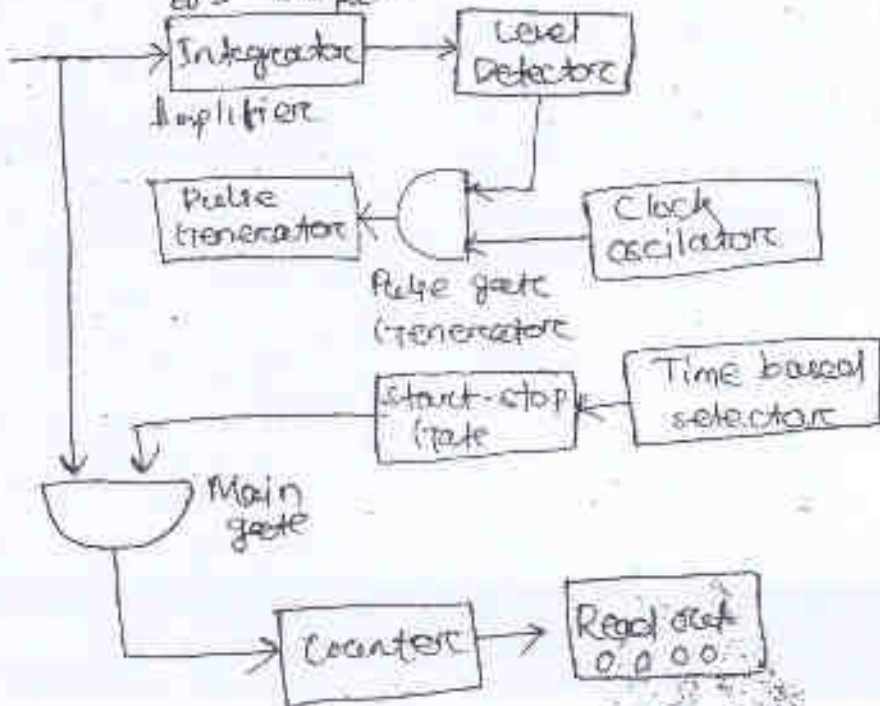 Integrator
Amplifier
Level
Detector
Pulse
Generator
Clock
oscilator
Pulse gate
Generator
start-stop
Gate
Time based
selector
Main
gate
Counter
Read out
0 0 0 0